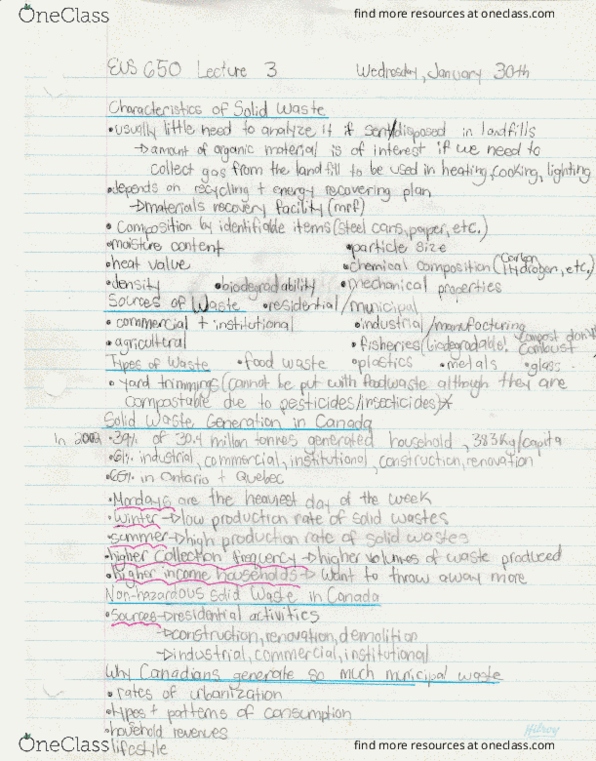 OneClass
find more resources at oneclass.com
EUS 650 Lecture 3 Wednesday, January 30th
Characteristics of Solid Waste
•usually little need to analyze it if sent/disposed in landfills
→amount of organic material is of interest if we need to
collect gas from the landfill to be used in heating, cooking, lighting
•depends on recycling + energy recovering plan
→materials recovery facility (mrf)
• Composition by identifiable items (steel cans, paper, etc.)
•moisture content •particle size
•heat value •chemical composition (Carbon, Hydrogen, etc.)
•density •biodegradability •mechanical properties
Sources of Waste •residential/municipal
• commercial + institutional •industrial/manufacturing
•agricultural •fisheries (biodegradable). Compost don't Combust
Types of Waste •food waste •plastics •metals •glass
• yard trimmings (cannot be put with foodwaste although they are
compostable due to pesticides/insecticides)
Solid Waste Generation in Canada
In 2002 •39% of 30.4 million tonnes generated household, 383kg/capita
•61% industrial, commercial, institutional, construction, renovation
•66% in Ontario + Quebec
•Mondays are the heaviest day of the week
•Winter→low production rate of solid wastes
•summer→high production rate of solid wastes
•higher collection frequency→higher volumes of waste produced
•higher income households→ want to throw away more
Non-hazardous solid Waste in Canada
•Sources→residential activities
→construction, renovation, demolition
→industrial, commercial, institutional
Why Canadians generate so much municipal waste
• rates of urbanization
•types + patterns of consumption
•household revenues
•lifestyle
Hilroy
OneClass
find more resources at oneclass.com